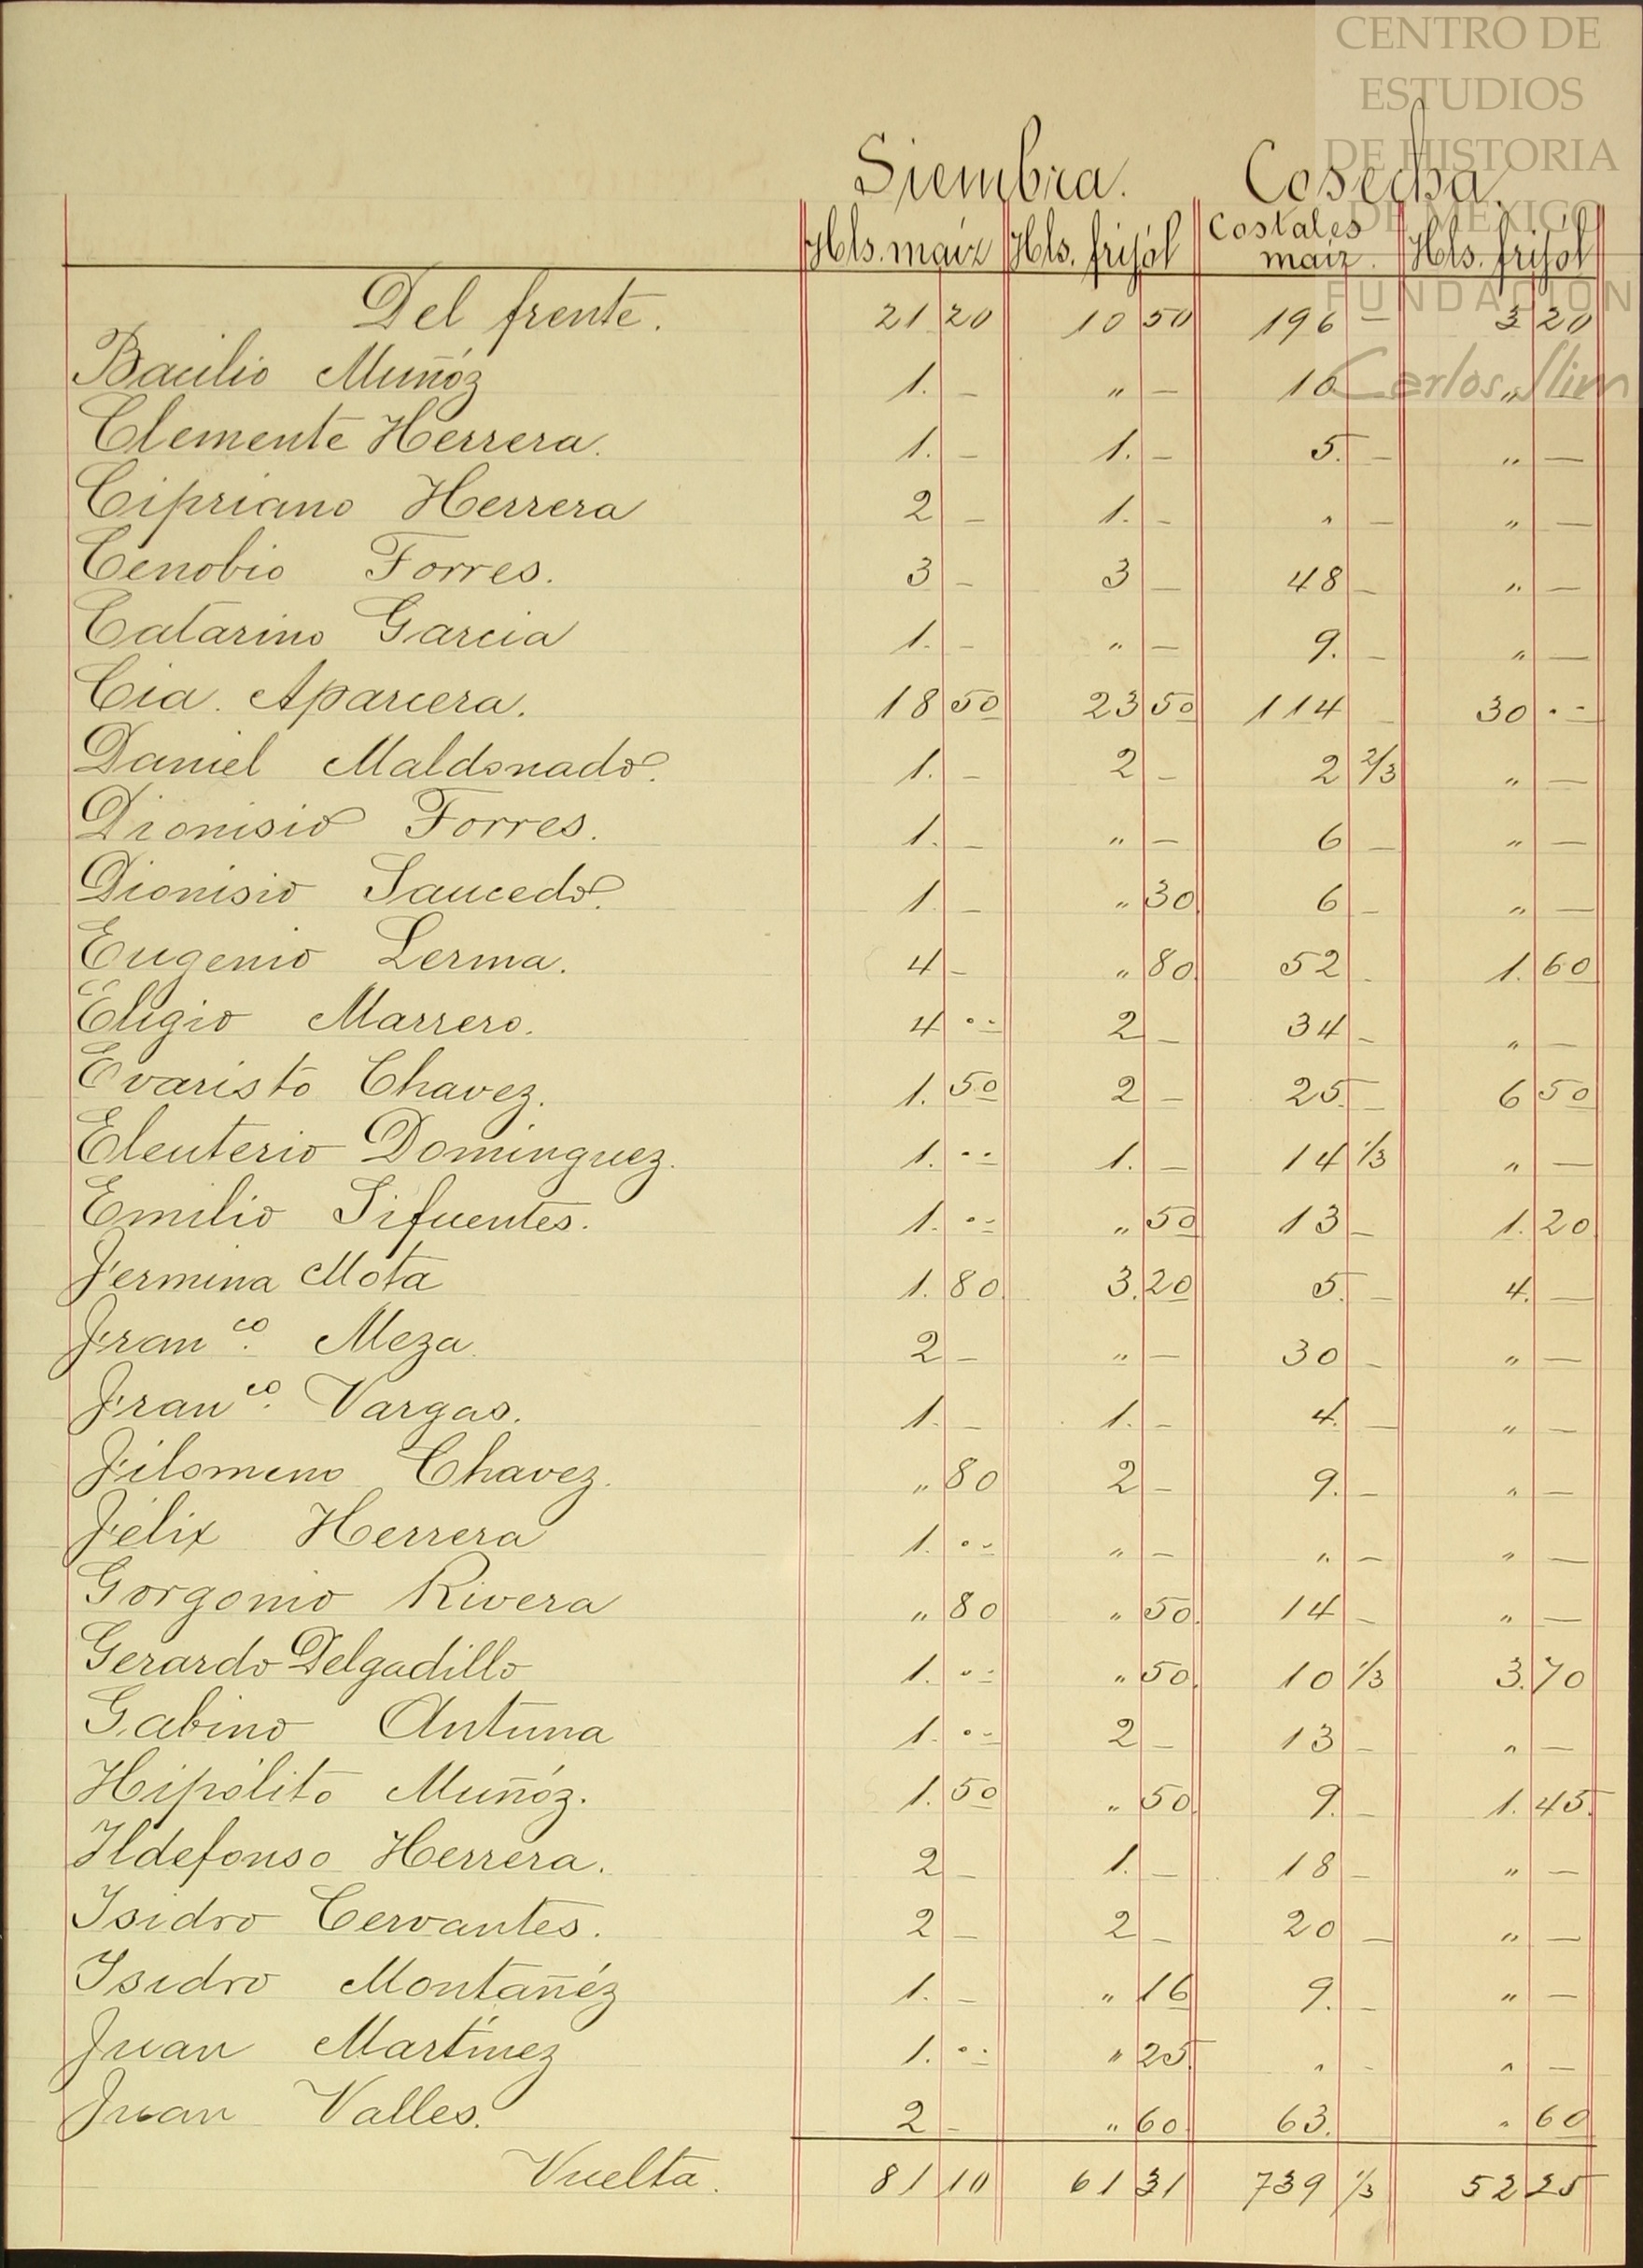 CENTRO DE
ESTUDIOS
DE HISTORIA
DE MEXICO
FUNDACION
Carlos Slim
Siembra. Cosecha.
Hls. maíz Hls. frijól Costales maiz. Hls. frijol
Del frente. 21 20 10 50 196 — 3 20
Bacilio Muñóz 1. — „ — 10 „ —
Clemente Herrera. 1. — 1. — 5. — „ —
Cipriano Herrera 2 — 1. — „ — „ —
Cenobio Torres. 3 — 3 — 48 — „ —
Catarino Garcia 1. — „ — 9. — „ —
Cia. Aparcera. 18 50 23 50 114 — 30 ..
Daniel Maldonado. 1. — 2 — 2 2/3 „ —
Dionisio Torres. 1. — „ — 6 — „ —
Dionisio Saucedo. 1 — „ 30 6 — „ —
Eugenio Lerma. 4 — „ 80 52 — 1. 60
Eligio Marrero. 4 .. 2 — 34 — „ —
Evaristo Chavez. 1. 50 2 — 25 — 6 50
Eleuterio Dominguez. 1. .. 1. — 14 1/3 „ —
Emilio Sifuentes. 1. .. „ 50 13 — 1. 20
Fermina Mota 1. 80 3. 20 5. — 4. —
Franco. Meza 2 — „ — 30 — „ —
Franco. Vargas. 1. — 1. — 4. — „ —
Filomeno Chavez. „ 80 2 — 9. — „ —
Félix Herrera 1. .. „ — „ — „ —
Gorgonio Rivera „ 80 „ 50 14 — „ —
Gerardo Delgadillo 1. .. „ 50 10 1/3 3. 70
Gabino Antuna 1. .. 2 — 13 — „ —
Hipólito Muñóz. 1. 50 „ 50 9. — 1. 45
Ildefonso Herrera. 2 — 1. — 18 — „ —
Isidro Cervantes. 2 — 2 — 20 — „ —
Isidro Montañéz 1. — „ 16 9. — „ —
Juan Martínez 1. .. „ 25 „ — „ —
Juan Valles. 2 — „ 60 63. „ 60
Vuelta. 81 10 61 31 739 1/3 52 25